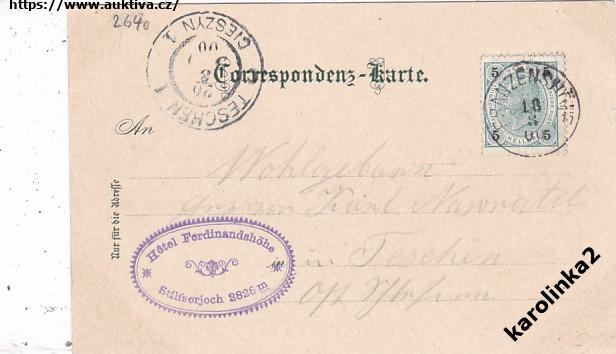 https://www.auktiva.cz/
2640
TESCHEN 1 CIESZYN 1
20 3 00
Correspondenz-Karte.
5 5
5 5
18
3
00
An
Wohlgeboren
Karl Nawratil
in Teschen
Ost Schlesien
Nur für die Adresse
Hôtel Ferdinandshöhe
Stilfserjoch 2828 m
karolinka2